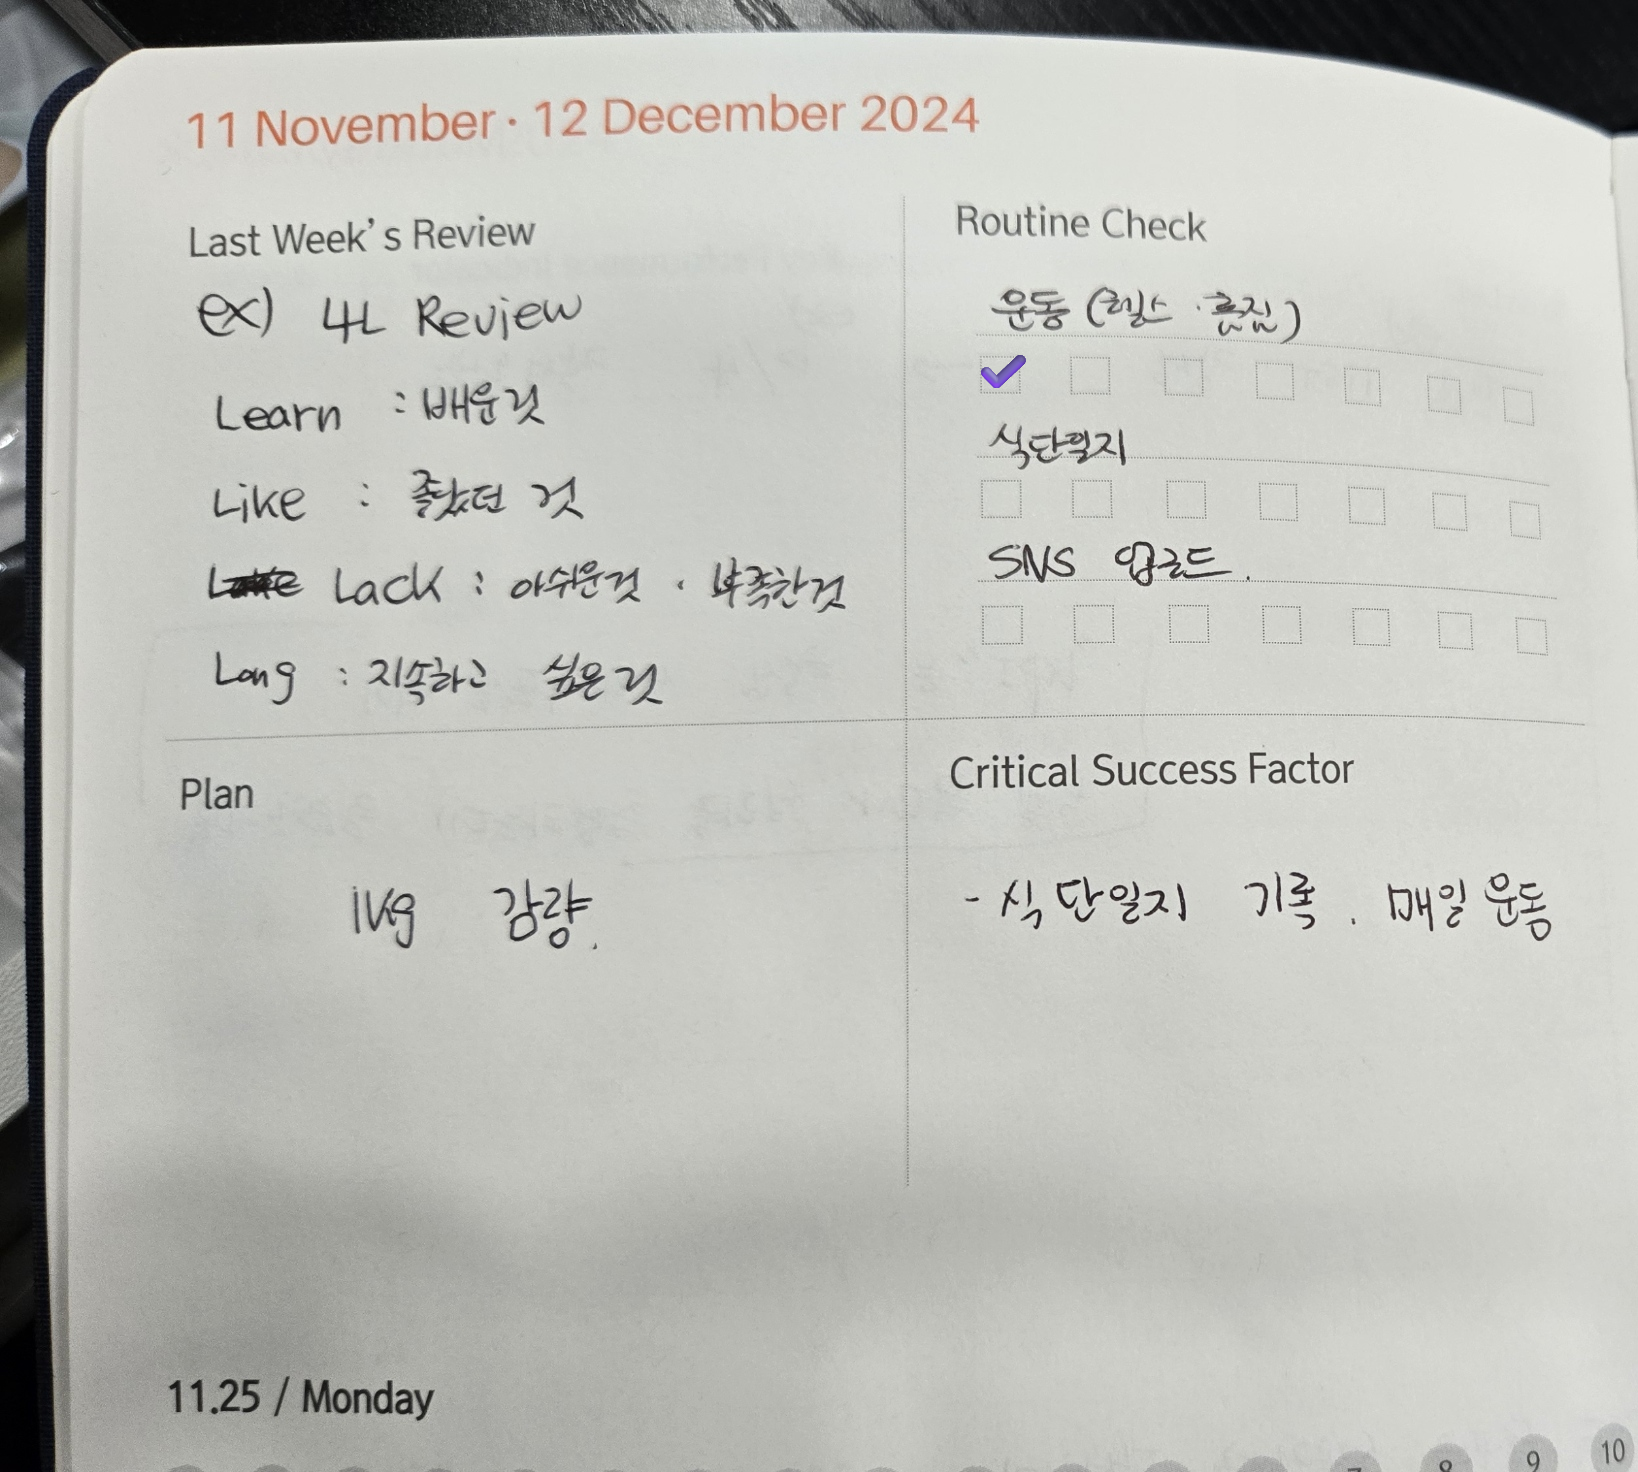 11 November · 12 December 2024
Last Week's Review
ex) 4L Review
Learn : 배운것
Like : 좋았던 것
Lack : 아쉬운것 · 부족한것
Long : 지속하고 싶은것
Routine Check
운동 (헬스 · 홈짐)
식단일지
SNS 업로드.
Plan
1kg 감량.
Critical Success Factor
- 식단일지 기록. 매일 운동
11.25 / Monday
7 8 9 10